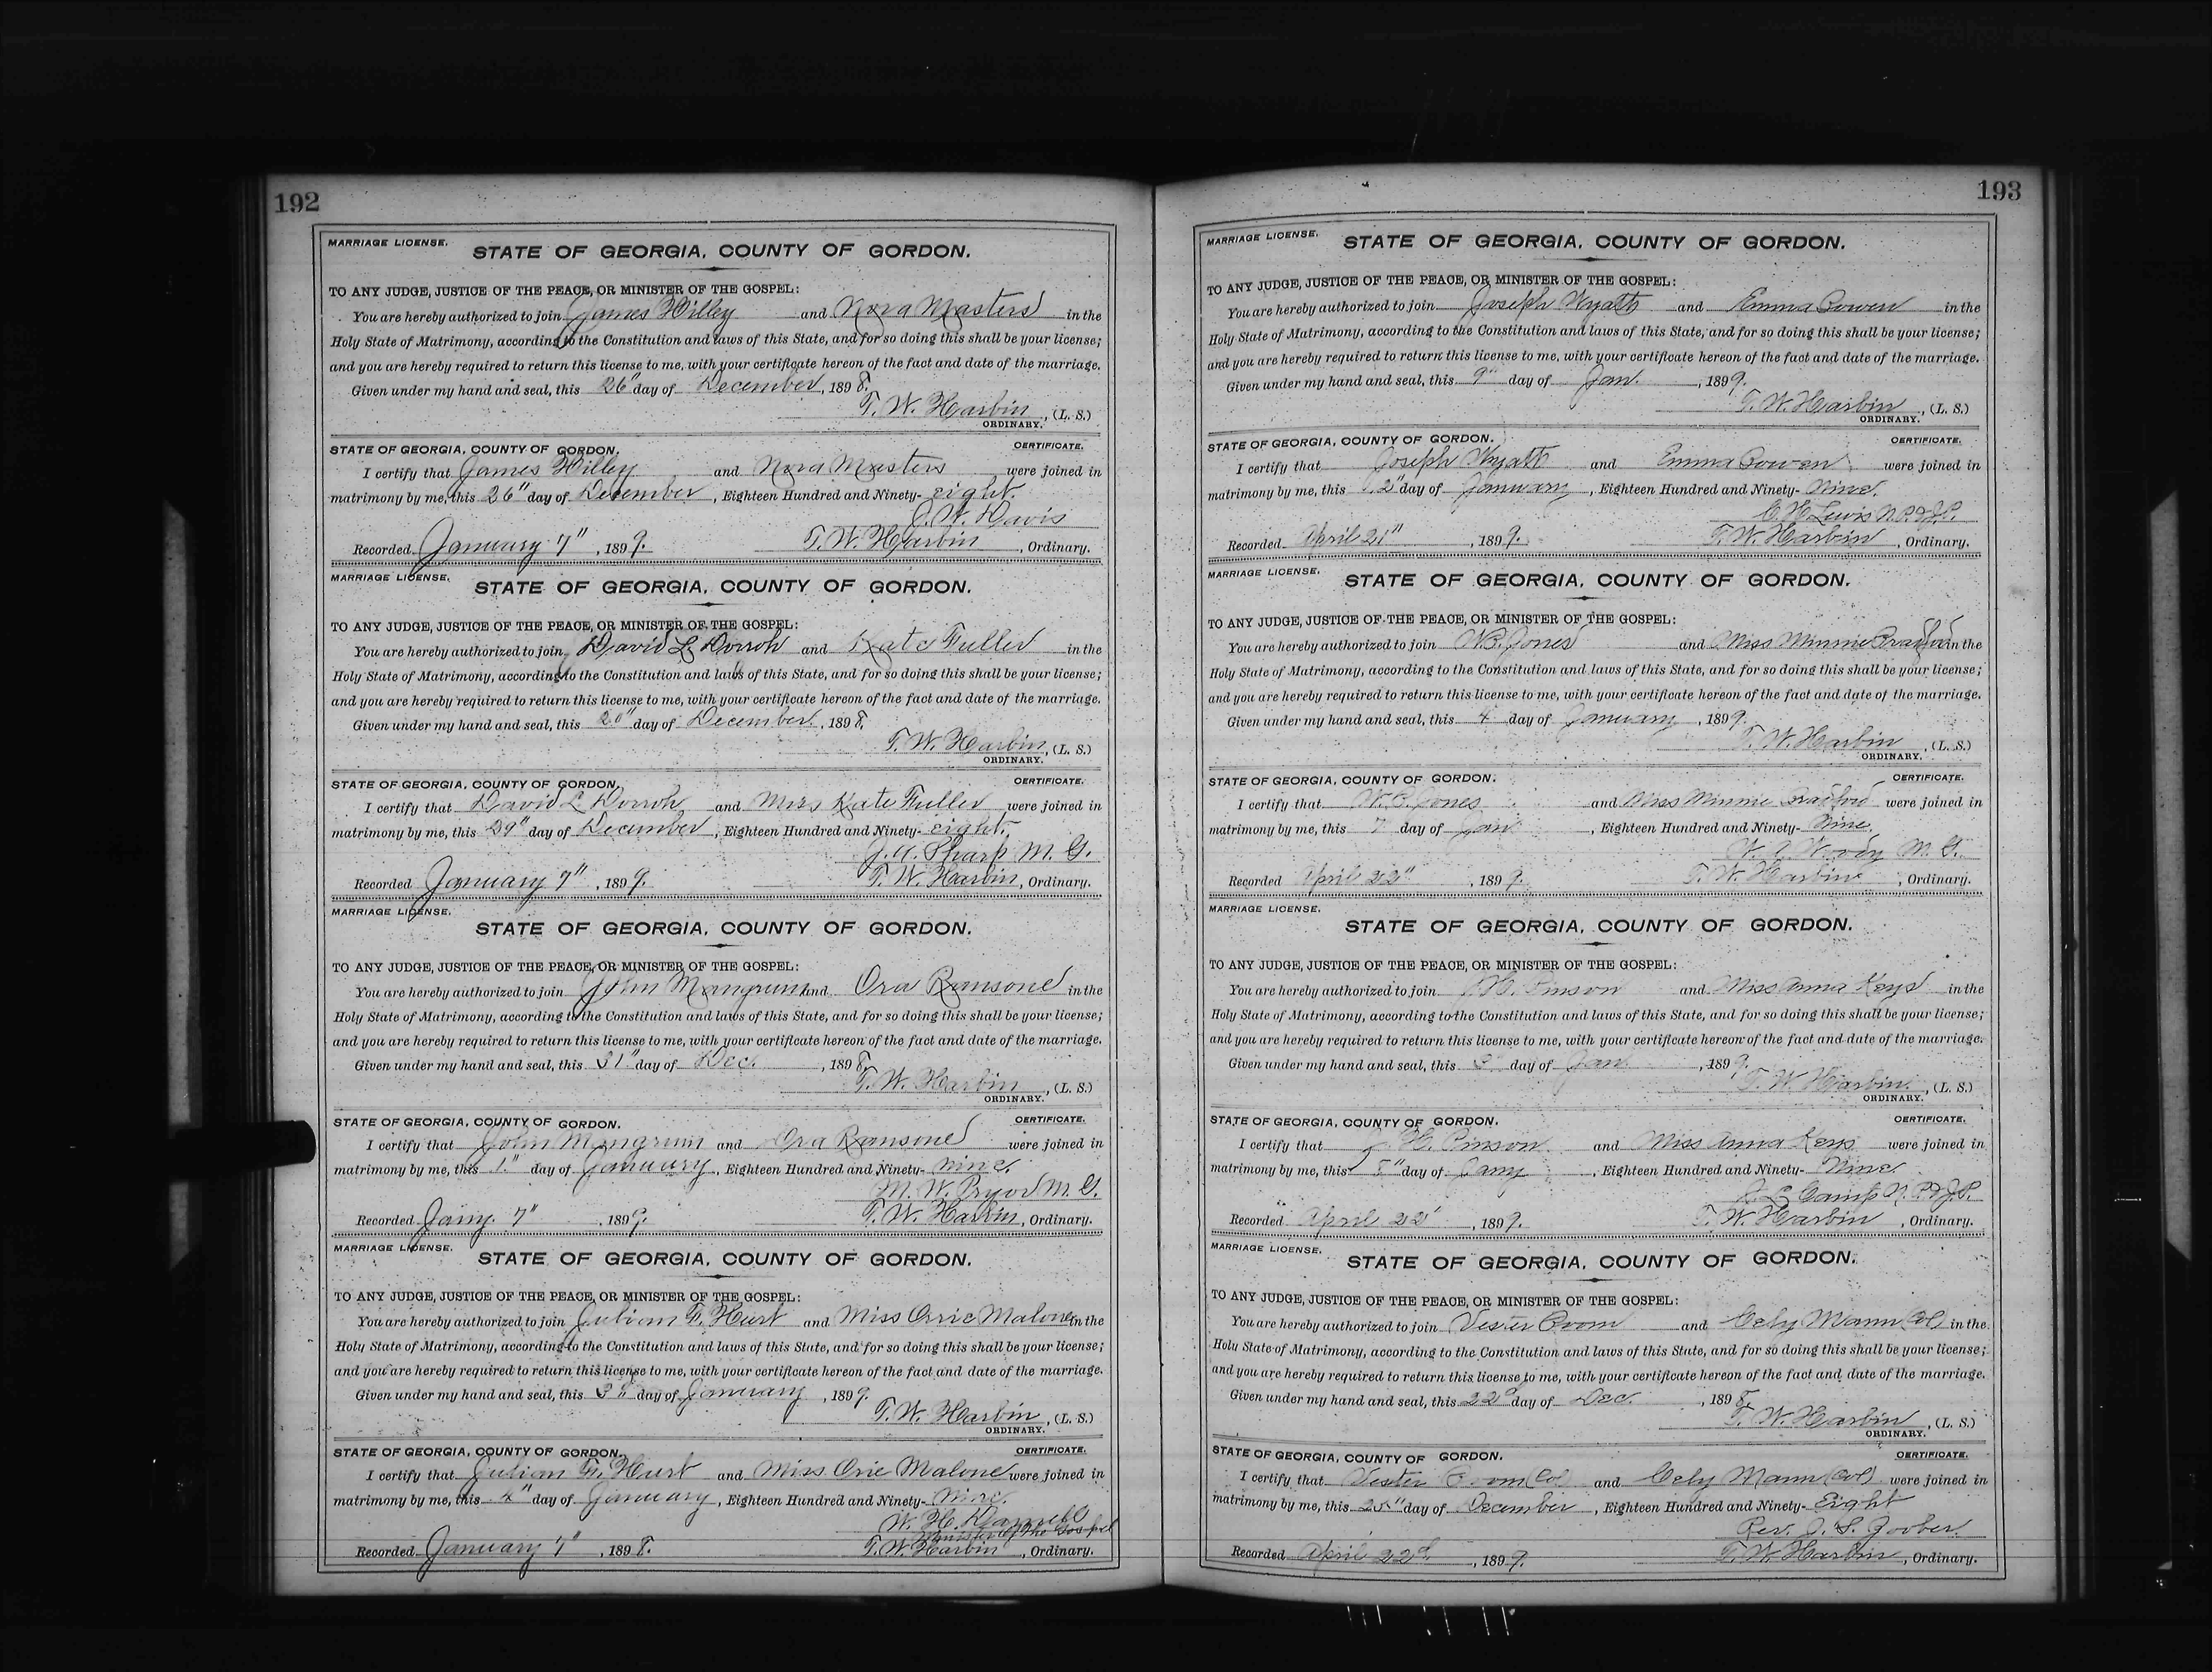 192
MARRIAGE LICENSE.
STATE OF GEORGIA, COUNTY OF GORDON.
TO ANY JUDGE, JUSTICE OF THE PEACE, OR MINISTER OF THE GOSPEL:
You are hereby authorized to join James Hilley and Nora Masters in the
Holy State of Matrimony, according to the Constitution and laws of this State, and for so doing this shall be your license;
and you are hereby required to return this license to me, with your certificate hereon of the fact and date of the marriage.
Given under my hand and seal, this 26" day of December, 1898.
T. W. Harbin, (L. S.)
ORDINARY.
STATE OF GEORGIA, COUNTY OF GORDON. CERTIFICATE.
I certify that James Hilley and Nora Masters were joined in
matrimony by me, this 26" day of December, Eighteen Hundred and Ninety-eight.
J. W. Davis
Recorded January 7", 1899. T. W. Harbin, Ordinary.
MARRIAGE LICENSE.
STATE OF GEORGIA, COUNTY OF GORDON.
TO ANY JUDGE, JUSTICE OF THE PEACE, OR MINISTER OF THE GOSPEL:
You are hereby authorized to join David L. Dorroh and Kate Fuller in the
Holy State of Matrimony, according to the Constitution and laws of this State, and for so doing this shall be your license;
and you are hereby required to return this license to me, with your certificate hereon of the fact and date of the marriage.
Given under my hand and seal, this 20" day of December, 1898.
T. W. Harbin, (L. S.)
ORDINARY.
STATE OF GEORGIA, COUNTY OF GORDON. CERTIFICATE.
I certify that David L. Dorroh and Miss Kate Fuller were joined in
matrimony by me, this 29" day of December, Eighteen Hundred and Ninety-eight.
J. A. Sharp M. G.
Recorded January 7", 1899. T. W. Harbin, Ordinary.
MARRIAGE LICENSE.
STATE OF GEORGIA, COUNTY OF GORDON.
TO ANY JUDGE, JUSTICE OF THE PEACE, OR MINISTER OF THE GOSPEL:
You are hereby authorized to join John Mangrum and Ora Ransone in the
Holy State of Matrimony, according to the Constitution and laws of this State, and for so doing this shall be your license;
and you are hereby required to return this license to me, with your certificate hereon of the fact and date of the marriage.
Given under my hand and seal, this 31" day of Dec., 1898.
T. W. Harbin, (L. S.)
ORDINARY.
STATE OF GEORGIA, COUNTY OF GORDON. CERTIFICATE.
I certify that John Mangrum and Ora Ransone were joined in
matrimony by me, this 1" day of January, Eighteen Hundred and Ninety-nine.
M. W. Pryor M. G.
Recorded Jany. 7", 1899. T. W. Harbin, Ordinary.
MARRIAGE LICENSE.
STATE OF GEORGIA, COUNTY OF GORDON.
TO ANY JUDGE, JUSTICE OF THE PEACE, OR MINISTER OF THE GOSPEL:
You are hereby authorized to join Julian F. Hurt and Miss Orrie Malone in the
Holy State of Matrimony, according to the Constitution and laws of this State, and for so doing this shall be your license;
and you are hereby required to return this license to me, with your certificate hereon of the fact and date of the marriage.
Given under my hand and seal, this 3d day of January, 1899.
T. W. Harbin, (L. S.)
ORDINARY.
STATE OF GEORGIA, COUNTY OF GORDON. CERTIFICATE.
I certify that Julian F. Hurt and Miss Orie Malone were joined in
matrimony by me, this 4" day of January, Eighteen Hundred and Ninety-nine.
W. H.
Minister of the Gospel
Recorded January 7", 1898. T. W. Harbin, Ordinary.
193
MARRIAGE LICENSE.
STATE OF GEORGIA, COUNTY OF GORDON.
TO ANY JUDGE, JUSTICE OF THE PEACE, OR MINISTER OF THE GOSPEL:
You are hereby authorized to join Joseph Wyatt and Emma Bowen in the
Holy State of Matrimony, according to the Constitution and laws of this State, and for so doing this shall be your license;
and you are hereby required to return this license to me, with your certificate hereon of the fact and date of the marriage.
Given under my hand and seal, this 9" day of Jan., 1899.
T. W. Harbin, (L. S.)
ORDINARY.
STATE OF GEORGIA, COUNTY OF GORDON. CERTIFICATE.
I certify that Joseph Wyatt and Emma Bowen were joined in
matrimony by me, this 12" day of January, Eighteen Hundred and Ninety-Nine.
C. H. Lewis N. P. & J. P.
Recorded April 21", 1899. T. W. Harbin, Ordinary.
MARRIAGE LICENSE.
STATE OF GEORGIA, COUNTY OF GORDON.
TO ANY JUDGE, JUSTICE OF THE PEACE, OR MINISTER OF THE GOSPEL:
You are hereby authorized to join W. B. Jones and Miss Minnie in the
Holy State of Matrimony, according to the Constitution and laws of this State, and for so doing this shall be your license;
and you are hereby required to return this license to me, with your certificate hereon of the fact and date of the marriage.
Given under my hand and seal, this 4" day of January, 1899.
T. W. Harbin, (L. S.)
ORDINARY.
STATE OF GEORGIA, COUNTY OF GORDON. CERTIFICATE.
I certify that W. B. Jones and Miss Minnie were joined in
matrimony by me, this 7 day of Jan, Eighteen Hundred and Ninety-Nine.
W. A. Woody M. G.
Recorded April 22", 1899. T. W. Harbin, Ordinary.
MARRIAGE LICENSE.
STATE OF GEORGIA, COUNTY OF GORDON.
TO ANY JUDGE, JUSTICE OF THE PEACE, OR MINISTER OF THE GOSPEL:
You are hereby authorized to join H. Pinson and Miss Anna Keys in the
Holy State of Matrimony, according to the Constitution and laws of this State, and for so doing this shall be your license;
and you are hereby required to return this license to me, with your certificate hereon of the fact and date of the marriage.
Given under my hand and seal, this 3" day of Jan., 1899.
T. W. Harbin, (L. S.)
ORDINARY.
STATE OF GEORGIA, COUNTY OF GORDON. CERTIFICATE.
I certify that J. H. Pinson and Miss Anna Keys were joined in
matrimony by me, this 8" day of Jany, Eighteen Hundred and Ninety-Nine.
J. L. Camp N. P. & J. P.
Recorded April 22", 1899. T. W. Harbin, Ordinary.
MARRIAGE LICENSE.
STATE OF GEORGIA, COUNTY OF GORDON.
TO ANY JUDGE, JUSTICE OF THE PEACE, OR MINISTER OF THE GOSPEL:
You are hereby authorized to join Vester Boom and Cely Mann (Col) in the
Holy State of Matrimony, according to the Constitution and laws of this State, and for so doing this shall be your license;
and you are hereby required to return this license to me, with your certificate hereon of the fact and date of the marriage.
Given under my hand and seal, this 22d day of Dec., 1898.
T. W. Harbin, (L. S.)
ORDINARY.
STATE OF GEORGIA, COUNTY OF GORDON. CERTIFICATE.
I certify that Vester Boom (Col) and Cely Mann (Col) were joined in
matrimony by me, this 25" day of December, Eighteen Hundred and Ninety-Eight
Rev. J. S. Goober
Recorded April 22d, 1899. T. W. Harbin, Ordinary.